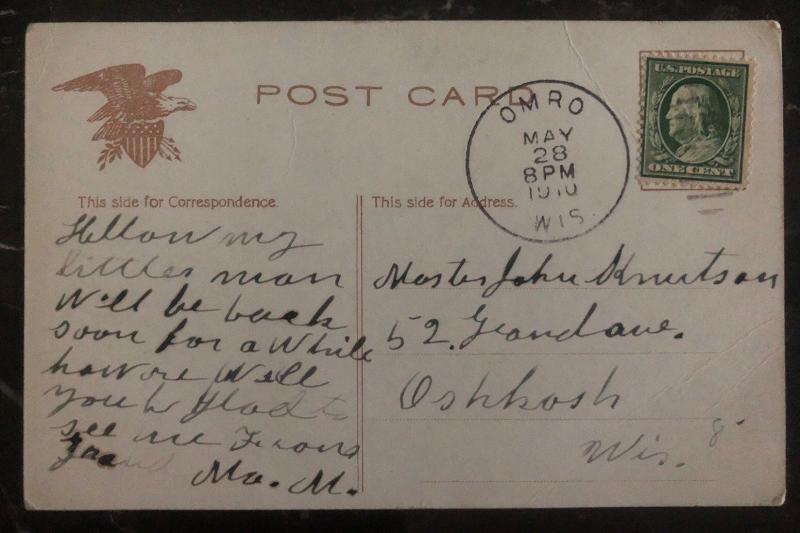 POST CARD
U.S. POSTAGE
ONE CENT
OMRO
MAY
28
8 PM
1910
WIS.
This side for Correspondence.
This side for Address.
Hellow my
little man
Will be back
soon for a While
how are Well
you be glad to
see me From
Grand
Ma. M.
Master John Knutson
52. Grand ave.
Oshkosh
Wis.
8